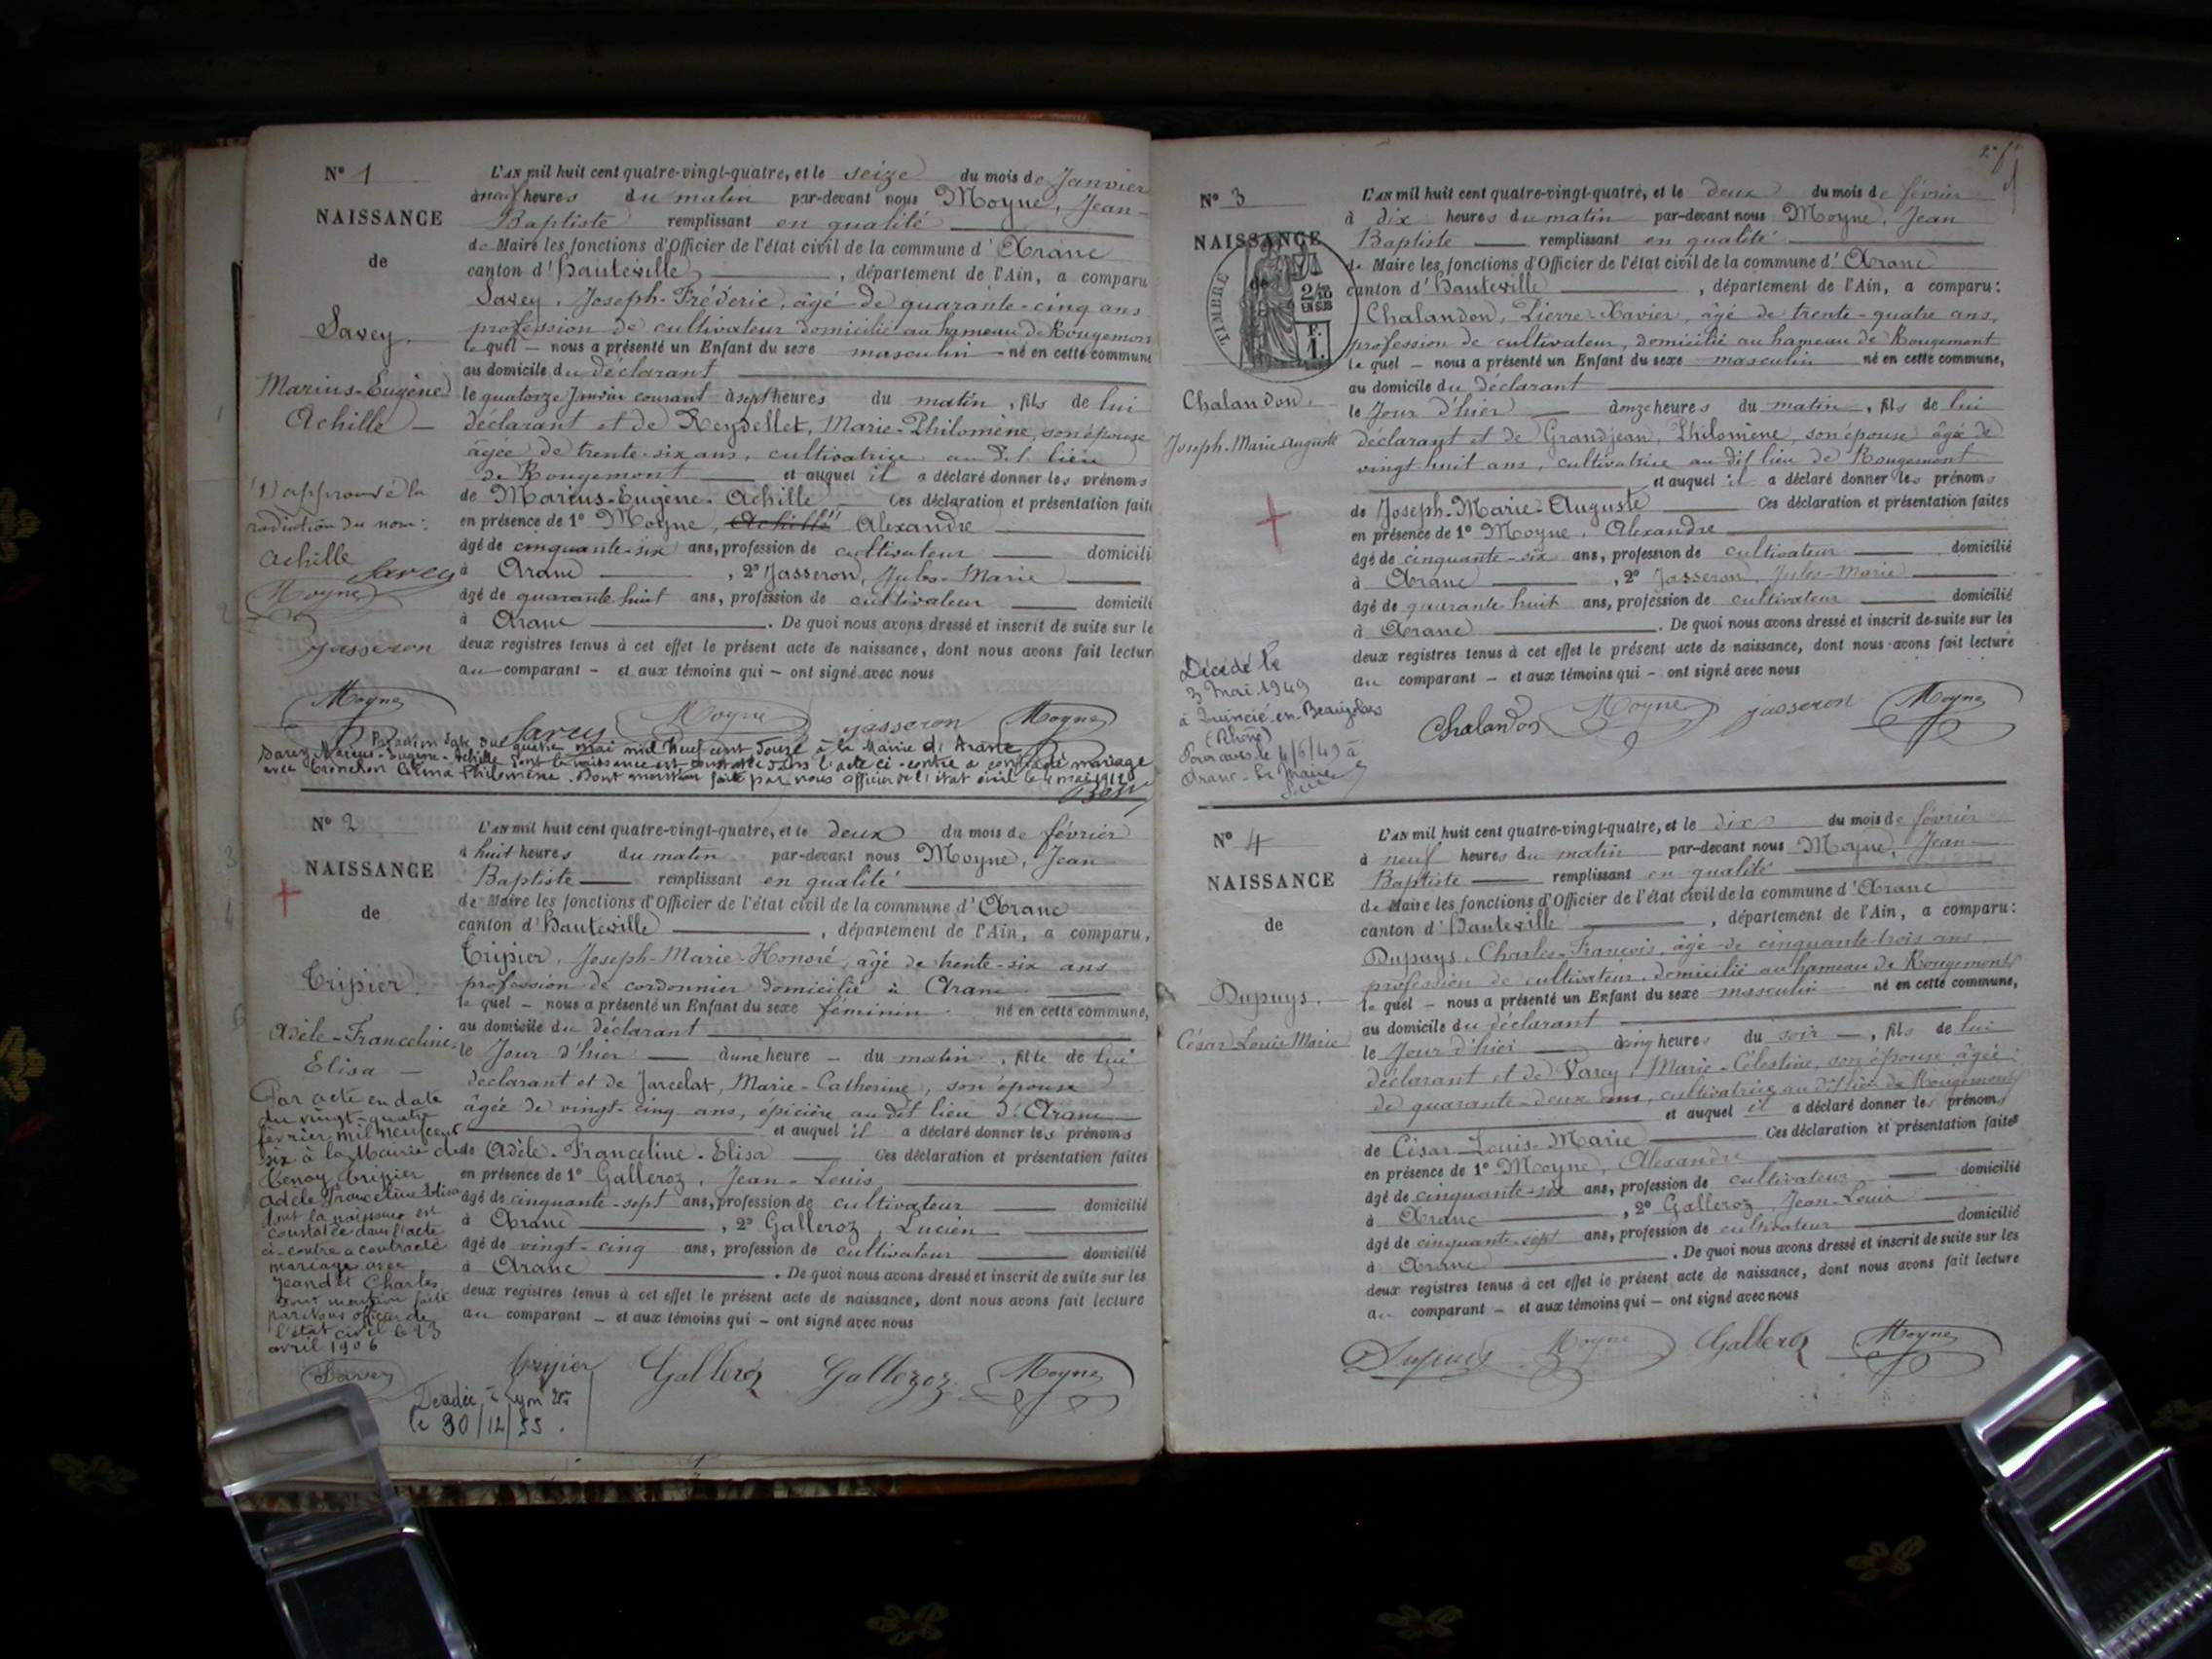 N° 1
NAISSANCE
de
Savey.
Marius-Eugène
Achille —
(1) approuvé la
radiation du nom:
Achille
Savey
Moyne
Jasseron
L'AN mil huit cent quatre-vingt-quatre, et le seize du mois de Janvier
à neuf heures du matin par-devant nous Moyne, Jean-
Baptiste remplissant en qualité
de Maire les fonctions d'Officier de l'état civil de la commune d'Aranc
canton d'Hauteville, département de l'Ain, a comparu
Savey, Joseph-Fréderic, âgé de quarante-cinq ans
profession de cultivateur domicilié au hameau de Rougemon
le quel — nous a présenté un Enfant du sexe masculin né en cette commune
au domicile du déclarant
le quatorze Janvier courant à sept heures du matin, fils de lui
déclarant et de Reydellet, Marie-Philomène, son épouse
âgée de trente-six ans, cultivatrice au dit lieu
de Rougemont et auquel il a déclaré donner les prénoms
de Marius-Eugène-Achille — Ces déclaration et présentation fait
en présence de 1° Moyne, Achille Alexandre
âgé de cinquante-six ans, profession de cultivateur domicili
à Aranc, 2° Jasseron, Jules-Marie
âgé de quarante huit ans, profession de cultivateur domicili
à Aranc. De quoi nous avons dressé et inscrit de suite sur le
deux registres tenus à cet effet le présent acte de naissance, dont nous avons fait lectur
au comparant — et aux témoins qui — ont signé avec nous
Moyne Savey Moyne Jasseron Moyne
quatre mai mil neuf cent douze à la Mairie d'Aranc
Savey Marius-Eugène-Achille dont la naissance est constatée dans l'acte ci-contre a contracté mariage
avec Philomène. Dont mention faite par nous officier de l'état civil le 4 mai 1912
N° 2
NAISSANCE
de
Tripier.
Adèle-Franceline
Elisa —
Par acte en date
du vingt-quatre
février mil neuf cent
six à la Mairie de
Tenay Tripier
Adèle Franceline Elisa
dont la naissance est
constatée dans l'acte
ci-contre a contracté
mariage avec
Jeandet Charles
dont mention faite
par nous officier de
l'état civil le 13
avril 1906
Savey
L'AN mil huit cent quatre-vingt-quatre, et le deux du mois de février
à huit heures du matin par-devant nous Moyne, Jean
Baptiste — remplissant en qualité
de Maire les fonctions d'Officier de l'état civil de la commune d'Aranc
canton d'Hauteville, département de l'Ain, a comparu,
Tripier, Joseph-Marie-Honoré, âgé de trente-six ans
profession de cordonnier domicilié à Aranc
le quel — nous a présenté un Enfant du sexe féminin né en cette commune,
au domicile du déclarant
le Jour d'hier — à une heure — du matin, fille de lui
déclarant et de Jarcelat, Marie-Catherine, son épouse
âgée de vingt-cinq ans, épicière au dit lieu d'Aranc
et auquel il a déclaré donner les prénoms
de Adèle-Franceline-Elisa — Ces déclaration et présentation faites
en présence de 1° Galleroz, Jean-Louis
âgé de cinquante-sept ans, profession de cultivateur domicilié
à Aranc, 2° Galleroz, Lucien
âgé de vingt-cinq ans, profession de cultivateur domicilié
à Aranc. De quoi nous avons dressé et inscrit de suite sur les
deux registres tenus à cet effet le présent acte de naissance, dont nous avons fait lecture
au comparant — et aux témoins qui — ont signé avec nous
Tripier Galleroz Galleroz Moyne
Décédée à Lyon
le 30/12/55.
N° 3
NAISSANCE
de
TIMBRE
2/10
EN SUS
Chalandon.
Joseph-Marie-Auguste
Décédé le
3 Mai 1949
à Quincié-en-Beaujolais
(Rhône)
Pour avis le 4/6/49 à
Aranc - Le Maire
L'AN mil huit cent quatre-vingt-quatre, et le deux du mois de février
à dix heures du matin par-devant nous Moyne, Jean
Baptiste — remplissant en qualité
de Maire les fonctions d'Officier de l'état civil de la commune d'Aranc
canton d'Hauteville, département de l'Ain, a comparu:
Chalandon, Pierre-Xavier, âgé de trente-quatre ans,
profession de cultivateur, domicilié au hameau de Rougemont
le quel — nous a présenté un Enfant du sexe masculin né en cette commune,
au domicile du déclarant
le Jour d'hier — à onze heures du matin, fils de lui
déclarant et de Grandjean, Philomène, son épouse âgée de
vingt huit ans, cultivatrice au dit lieu de Rougemont
et auquel il a déclaré donner les prénoms
de Joseph-Marie-Auguste — Ces déclaration et présentation faites
en présence de 1° Moyne, Alexandre
âgé de cinquante-six ans, profession de cultivateur domicilié
à Aranc, 2° Jasseron, Jules-Marie
âgé de quarante huit ans, profession de cultivateur domicilié
à Aranc. De quoi nous avons dressé et inscrit de suite sur les
deux registres tenus à cet effet le présent acte de naissance, dont nous avons fait lecture
au comparant — et aux témoins qui — ont signé avec nous
Chalandon Moyne Jasseron Moyne
N° 4
NAISSANCE
de
Dupuys.
César Louis Marie
L'AN mil huit cent quatre-vingt-quatre, et le dix du mois de février
à neuf heures du matin par-devant nous Moyne, Jean
Baptiste — remplissant en qualité
de Maire les fonctions d'Officier de l'état civil de la commune d'Aranc
canton d'Hauteville, département de l'Ain, a comparu:
Dupuys, Charles-François, âgé de cinquante-trois ans
profession de cultivateur, domicilié au hameau de Rougemont
le quel — nous a présenté un Enfant du sexe masculin né en cette commune,
au domicile du déclarant
le Jour d'hier à cinq heures du soir —, fils de lui
déclarant et de Varey, Marie-Célestine, son épouse âgée
de quarante-deux ans, cultivatrice au dit lieu de Rougemont
et auquel il a déclaré donner les prénoms
de César-Louis-Marie Ces déclaration et présentation faites
en présence de 1° Moyne, Alexandre
âgé de cinquante-six ans, profession de cultivateur domicilié
à Aranc, 2° Galleroz, Jean-Louis
âgé de cinquante-sept ans, profession de cultivateur domicilié
à Aranc. De quoi nous avons dressé et inscrit de suite sur les
deux registres tenus à cet effet le présent acte de naissance, dont nous avons fait lecture
au comparant — et aux témoins qui — ont signé avec nous
Dupuys Moyne Galleroz Moyne